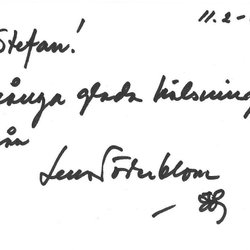 11.2-
Stefan!
ånga glada hälsning
ån
Lena Söderblom